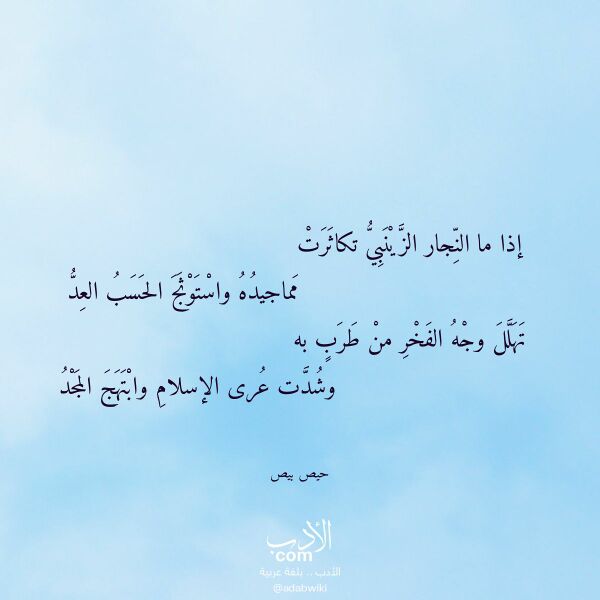 إذا ما النِّجار الزَّيْنَبِيُّ تكاثَرَتْ
مَماجيدُهُ واسْتَوْثَجَ الحَسَبُ العِدُّ
تَهَلَّلَ وجْهُ الفَخْرِ منْ طَرَبٍ به
وشُدَّت عُرى الإسلامِ وابْتَهَجَ المَجْدُ
حيص بيص
الأدب
.com
الأدب .. بلغة عربية
@adabwiki